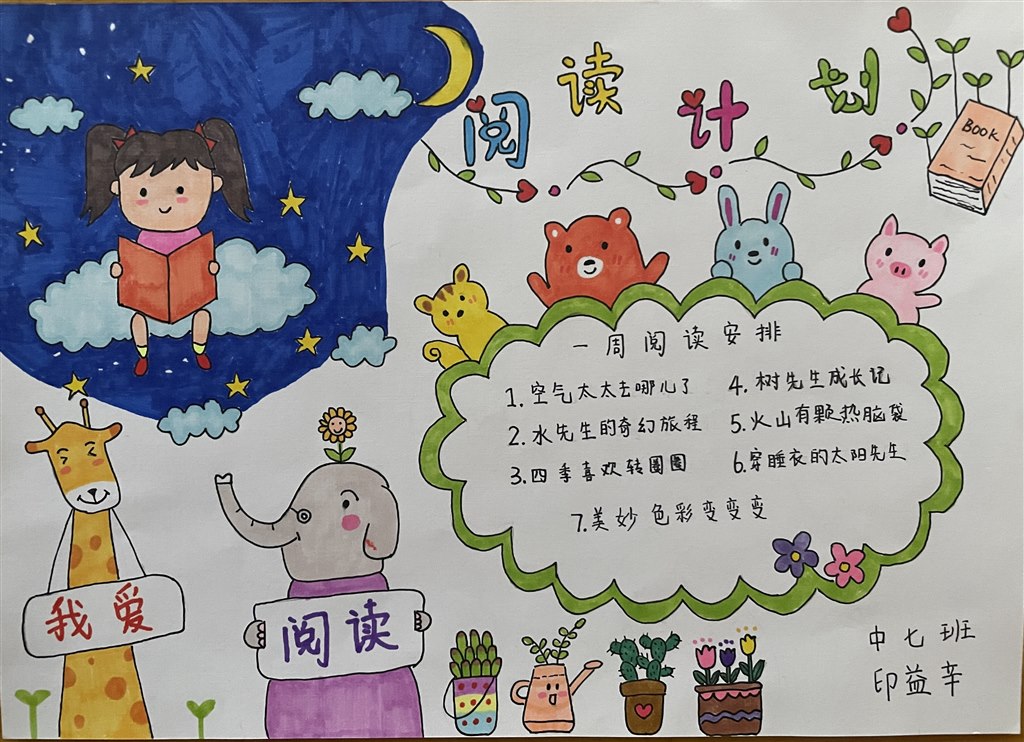 阅读计划
BOOK
一周阅读安排
1.空气太太去哪儿了
2.水先生的奇幻旅程
3.四季喜欢转圈圈
4.树先生成长记
5.火山有颗热脑袋
6.穿睡衣的太阳先生
7.美妙色彩变变变
我爱
阅读
中七班
印益辛